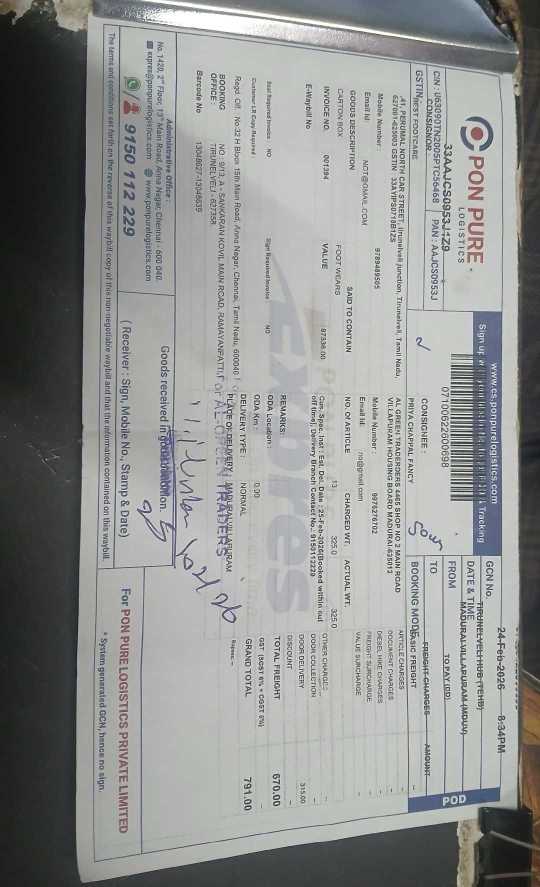 PON PURE
LOGISTICS
www.cs.ponpurelogistics.com
CIN : U63090TN2005PTC56468 PAN : AAJCS0953J
33AAJCS0953J1Z9
GSTIN
071000622600698
GCN No.
DATE & TIME 24-Feb-2026 8:34PM
FROM TIRUNELVELI HUB (TEHB)
TO MADURAI-VILLAPURAM (MDUV)
BOOKING MODE TO PAY (DD)
POD
CONSIGNOR
BEST FOOTCARE
CONSIGNEE :
PRIYA CHAPPAL FANCY
AL GREEN TRADERDERS 4465 SHOP NO 2 MAIN ROAD
VILLAPURAM HOUSING BOARD MADURAI-625012
Mobile Number : 9789489505
Mobile Number : 9976276702
Email Id: NOT@GMAIL.COM
Email Id: no@gmail.com
GOODS DESCRIPTION SAID TO CONTAIN NO. OF ARTICLE CHARGED WT. ACTUAL WT.
CARTON BOX FOOT WEARS 13 325.0 325.0
INVOICE NO. 001394 VALUE 97336.00
E-Waybill No
FREIGHT CHARGES AMOUNT
BASIC FREIGHT
ARTICLE CHARGES
DOCUMENT CHARGES
DIESEL HIKE CHARGES
FREIGHT SURCHARGE
VALUE SURCHARGE
OTHER CHARGES
DOOR COLLECTION
DOOR DELIVERY 315.00
DISCOUNT
TOTAL FREIGHT 670.00
GST (SGST 6% + CGST 6%)
GRAND TOTAL 791.00
Rupees :--
REMARKS:
ODA Location :
ODA Km : 0.00
DELIVERY TYPE : NORMAL
PLACE OF DELIVERY
Seal Required Invoice NO
Sign Required Invoice NO
Customer LR Copy Required
Regd. Off : No:32 H Block 15th Main Road, Anna Nagar, Chennai, Tamil Nadu, 600040
BOOKING OFFICE : NO : 9/13, A - SANKARAN KOVIL MAIN ROAD, RAMAYANPATTI,
TIRUNELVELI - 627358
Barcode No 13048627-13048639
EXPRESS
Administrative Office :
No. 1420, 2nd Floor, 13th Main Road, Anna Nagar, Chennai - 600 040.
express@ponpurelogistics.com www.ponpurelogistics.com
9150 112 229
Goods received in good condition.
( Receiver : Sign, Mobile No., Stamp & Date)
For PON PURE LOGISTICS PRIVATE LIMITED
The terms and conditions set forth on the reverse of this waybill copy of this non-negotiable waybill and that the information contained on this waybill.
* System generated GCN, hence no sign.